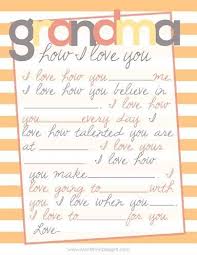 grandma
how I love you
I love how you_____me.
I love how you believe in
_____. I love how
you_____every day. I
love how talented you are
at_____. I love your
_____. I love how
you make_____. I
love going to_____with
you. I love when you_____.
I love to_____for you.
Love-